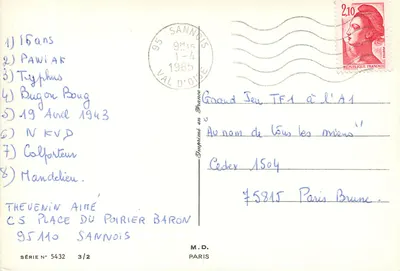 1) 16 ans
2) PAWIAK
3) Typhus
4) Bugon Boug
5) 19 Avril 1943
6) NKVD
7) Colporteur
8) Mandelieu.
THEVENIN AIMÉ
C5 PLACE DU POIRIER BARON
95110 SANNOIS
SÉRIE N° 5432 3/2
M. D.
PARIS
Imprimé en France
95 SANNOIS
1985
VAL D'OISE
2,10
REPUBLIQUE FRANÇAISE
Grand Jeu TF1 à l'A1
"Au nom de tous les miens"
Cedex 1504
75815 Paris Brune.